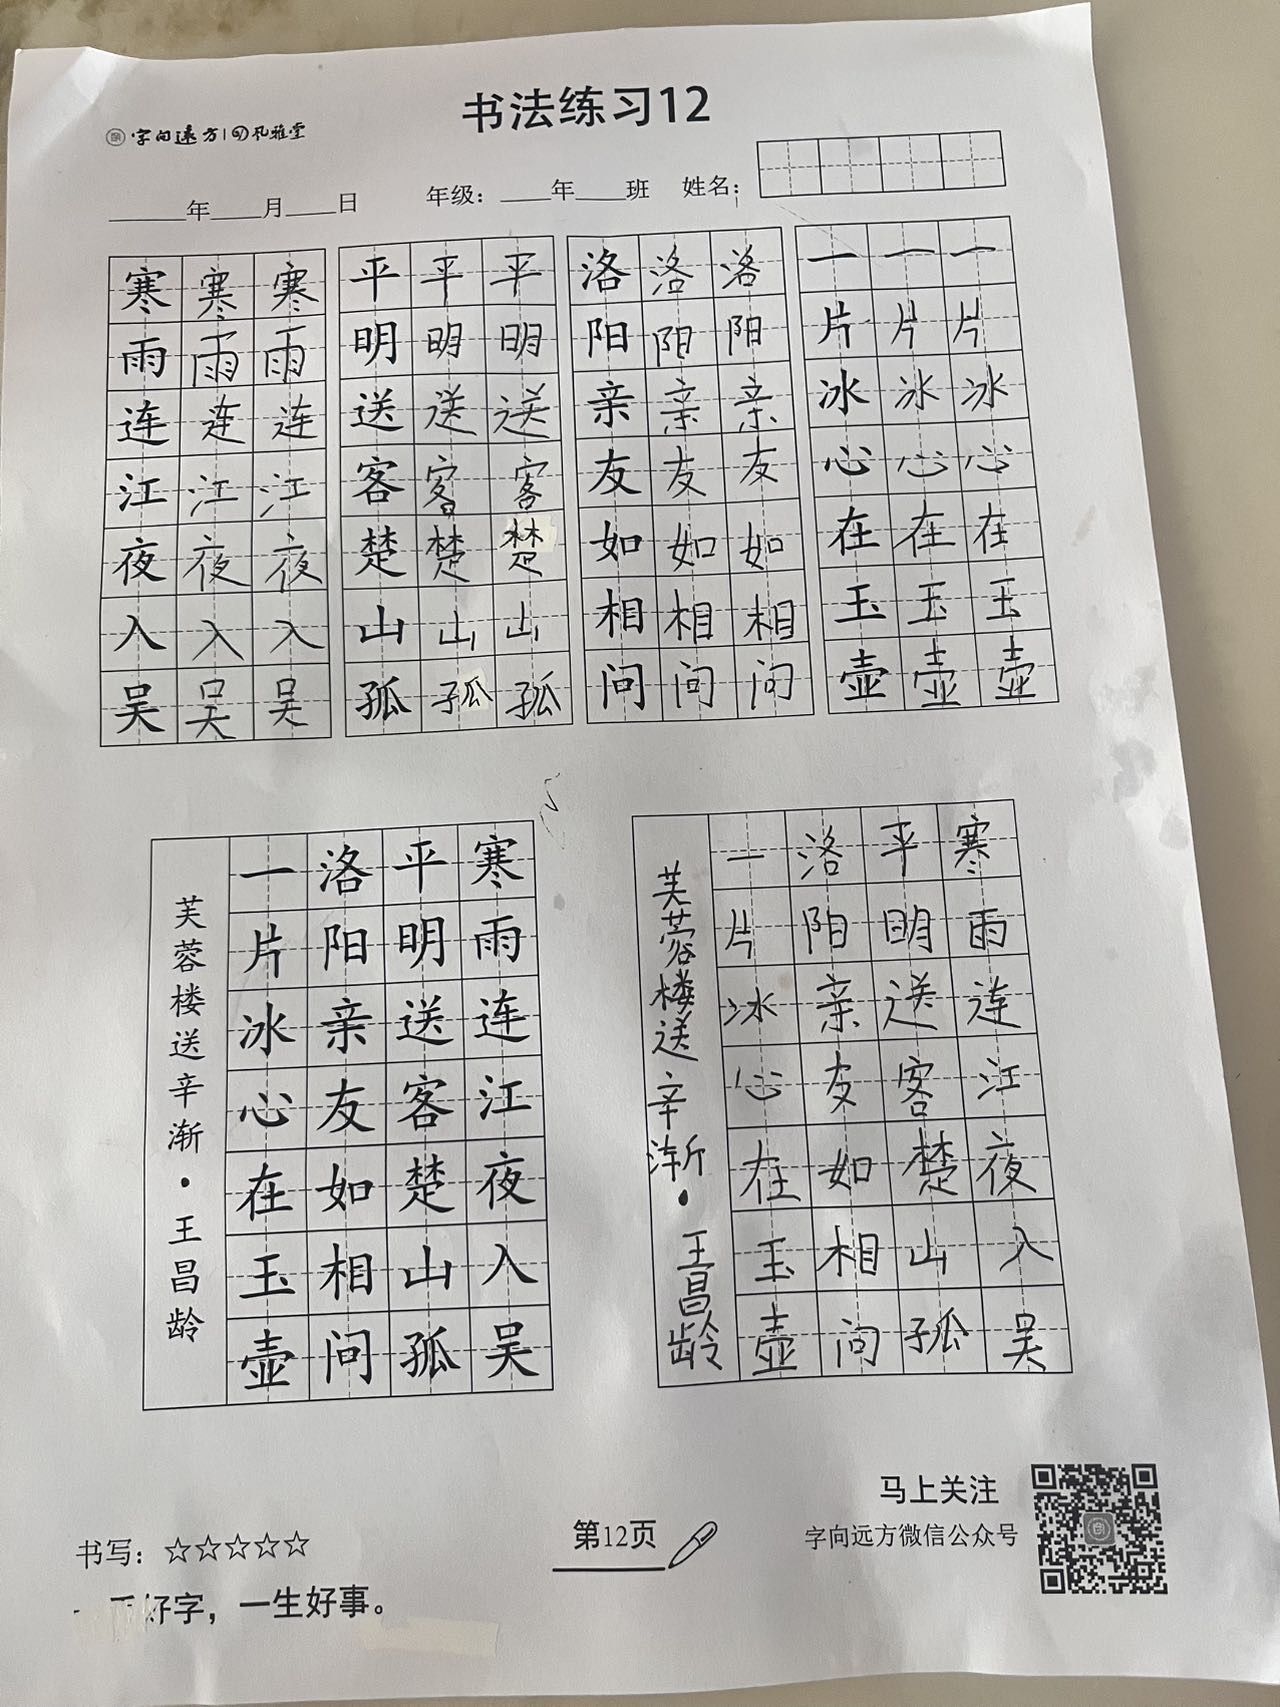 书法练习12
字向远方 礼雅堂
____年____月____日 年级：____年____班 姓名：
寒寒寒 平平平 洛洛洛 一一一
雨雨雨 明明明 阳阳阳 片片片
连连连 送送送 亲亲亲 冰冰冰
江江江 客客客 友友友 心心心
夜夜夜 楚楚楚 如如如 在在在
入入入 山山山 相相相 玉玉玉
吴吴吴 孤孤孤 问问问 壶壶壶
寒雨连江夜入吴
平明送客楚山孤
洛阳亲友如相问
一片冰心在玉壶
芙蓉楼送辛渐·王昌龄
寒雨连江夜入吴
平明送客楚山孤
洛阳亲友如相问
一片冰心在玉壶
芙蓉楼送辛渐·王昌龄
书写：☆☆☆☆☆
好字，一生好事。
第12页
马上关注
字向远方微信公众号